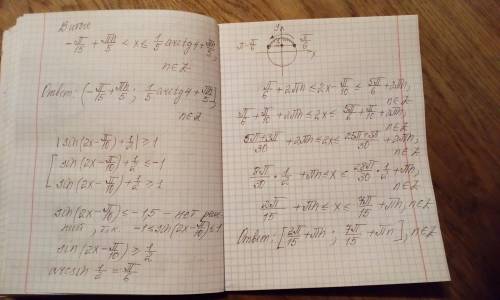 Витоге
-π/15 + πn/5 < x ≤ 1/5 arcctg 4 + πn/5,
n∈Z
Ответ: (-π/15 + πn/5; 1/5 arcctg 4 + πn/5],
n∈Z
|sin(2x-π/10)+1/2| ≥ 1
[sin(2x-π/10)+1/2 ≤ -1
[sin(2x-π/10)+1/2 ≥ 1
sin(2x-π/10) ≤ -1,5 - нет реше
ний, т.к. -1 ≤ sin(2x-π/10) ≤ 1
sin(2x-π/10) ≥ 1/2
arcsin 1/2 = π/6
π-π/6
π/6
y
x
π/6 + 2πn ≤ 2x - π/10 ≤ 5π/6 + 2πn,
n∈Z
π/6 + π/10 + 2πn ≤ 2x ≤ 5π/6 + π/10 + 2πn,
n∈Z
5π+3π/30 + 2πn ≤ 2x ≤ 25π+3π/30 + 2πn,
n∈Z
8π/30 · 1/2 + πn ≤ x ≤ 28π/30 · 1/2 + πn,
n∈Z
2π/15 + πn ≤ x ≤ 7π/15 + πn, n∈Z
Ответ: [2π/15 + πn; 7π/15 + πn], n∈Z